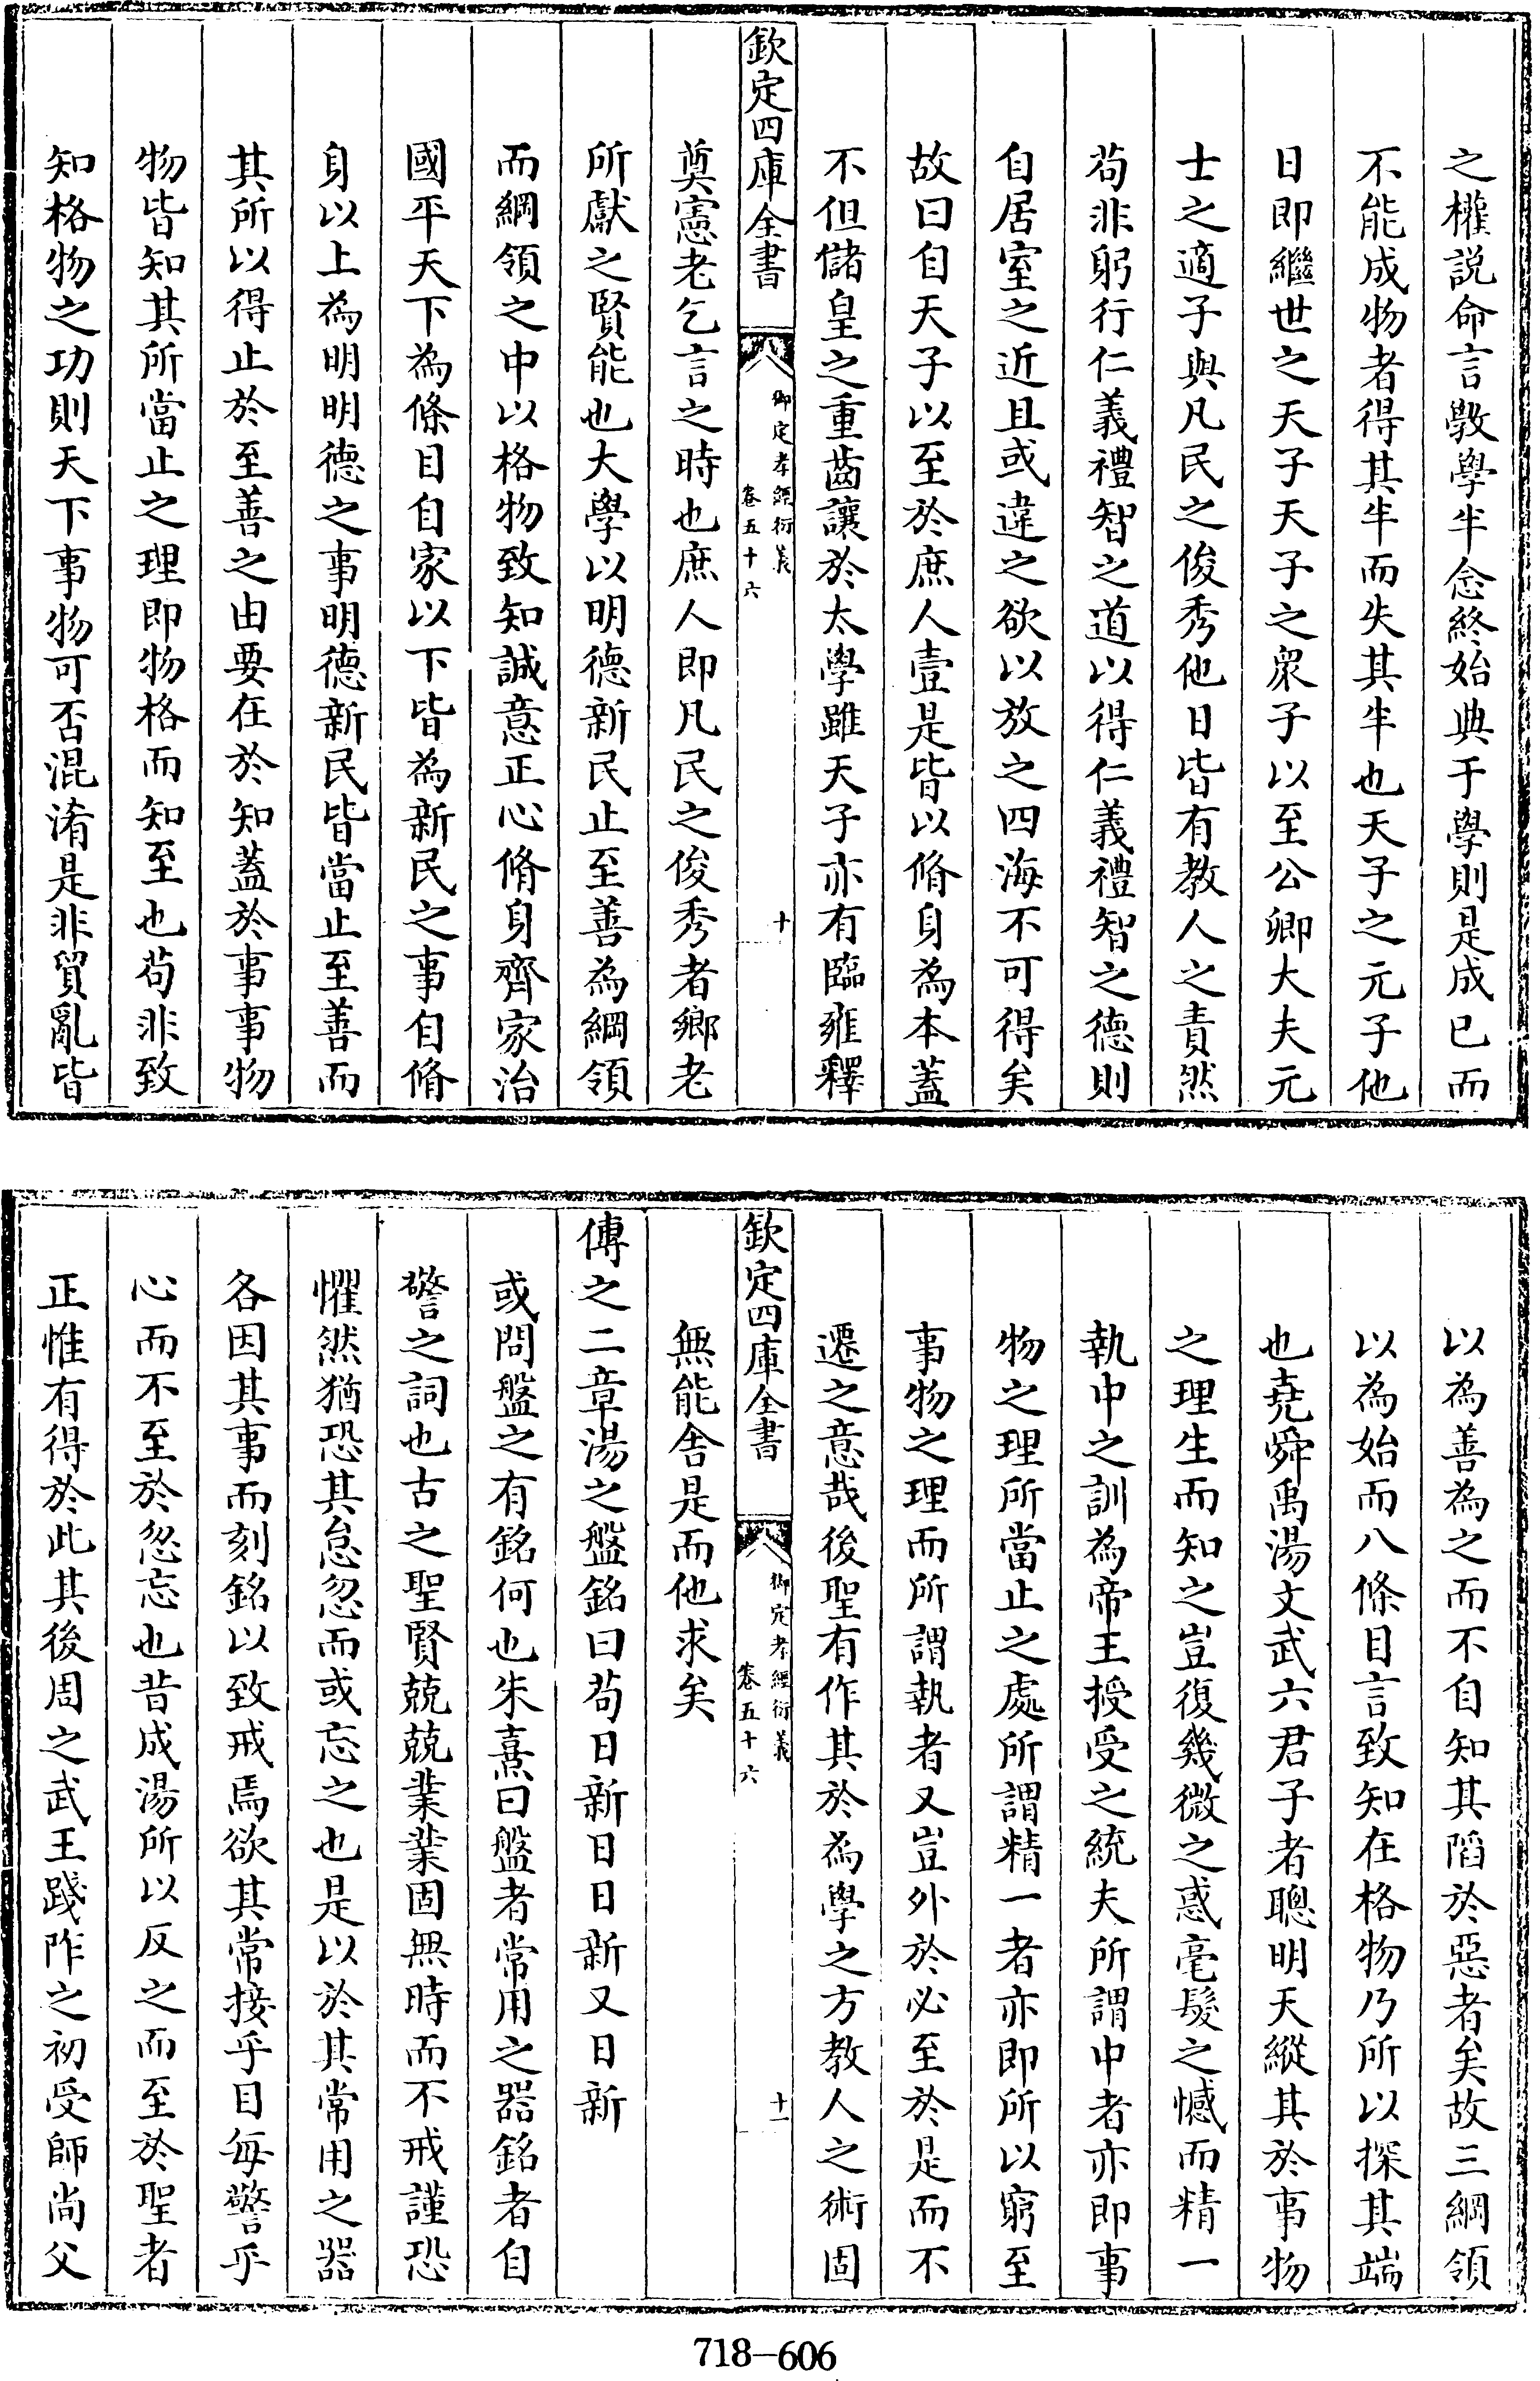 之權説命言斆學半念終始典于學則是成已而
不能成物者得其半而失其半也天子之元子他
日即繼世之天子天子之衆子以至公卿大夫元
士之適子與凡民之俊秀他日皆有教人之責然
茍非躬行仁義禮智之道以得仁義禮智之德則
自居室之近且或違之欲以放之四海不可得矣
故曰自天子以至於庶人壹是皆以脩身為本蓋
不但儲皇之重齒讓於太學雖天子亦有臨雍釋
欽定四庫全書
御定孝經衍義
卷五十六
十
奠憲老乞言之時也庶人即凡民之俊秀者鄉老
所獻之賢能也大學以明德新民止至善為綱領
而綱領之中以格物致知誠意正心脩身齊家治
國平天下為條目自家以下皆為新民之事自脩
身以上為明明德之事明德新民皆當止至善而
其所以得止於至善之由要在於知蓋於事事物
物皆知其所當止之理即物格而知至也茍非致
知格物之功則天下事物可否混淆是非貿亂皆
以為善為之而不自知其陷於惡者矣故三綱領
以為始而八條目言致知在格物乃所以探其端
也堯舜禹湯文武六君子者聰明天縱其於事物
之理生而知之豈復幾微之惑毫髮之憾而精一
執中之訓為帝王授受之統夫所謂中者亦即事
物之理所當止之處所謂精一者亦即所以窮至
事物之理而所謂執者又豈外於必至於是而不
遷之意哉後聖有作其於為學之方教人之術固
欽定四庫全書
御定孝經衍義
卷五十六
十一
無能舍是而他求矣
傳之二章湯之盤銘曰茍日新日日新又日新
或問盤之有銘何也朱熹曰盤者常用之器銘者自
警之詞也古之聖賢兢兢業業固無時而不戒謹恐
懼然猶恐其怠忽而或忘之也是以於其常用之器
各因其事而刻銘以致戒焉欲其常接乎目每警乎
心而不至於忽忘也昔成湯所以反之而至於聖者
正惟有得於此其後周之武王踐阼之初受師尚父
718-606